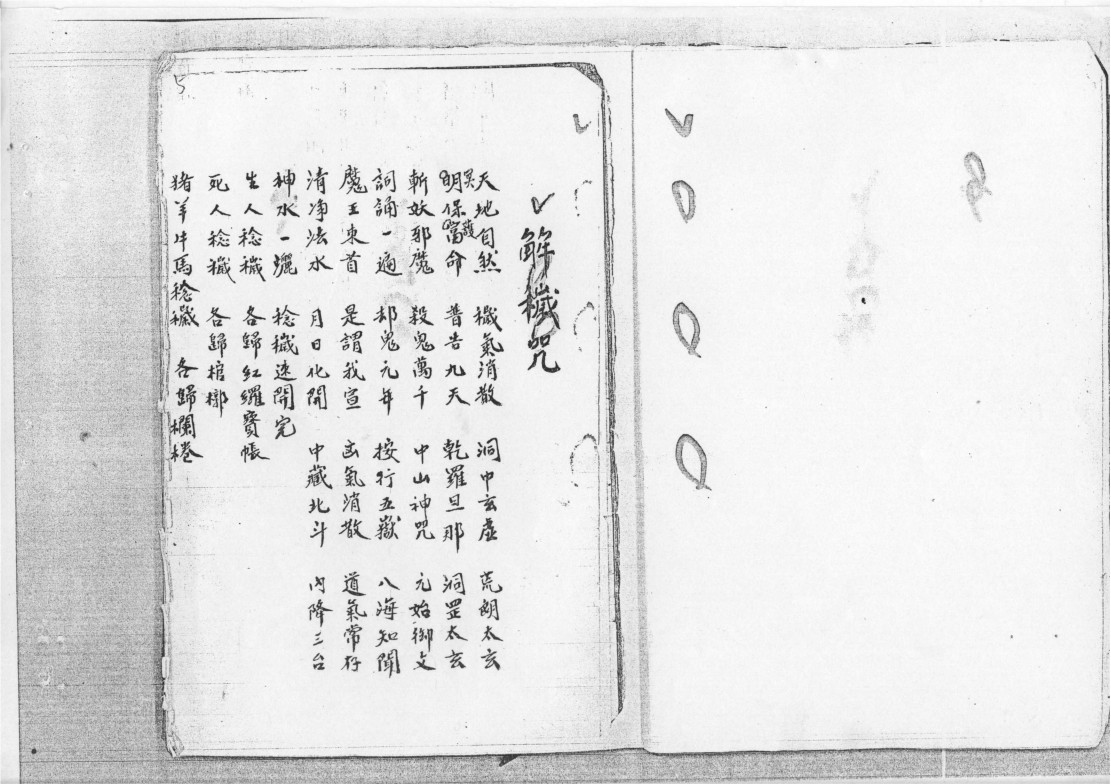 解穢咒
天地自然 穢氣消散 洞中玄虛 荒朗太玄
明保當命 普告九天 乾羅旦那 洞罡太玄
護
斬妖邪魔 殺鬼萬千 中山神咒 元始御文
詞誦一遍 却鬼元年 按行五嶽 八海知聞
魔王東首 是謂我宣 凶氣消散 道氣常存
清净法水 月日化開 中藏北斗 內降三台
神水一灑 稔穢速開完
生人稔穢 各歸紅羅寶帳
死人稔穢 各歸棺槨
猪羊牛馬稔穢 各歸欄棬
5